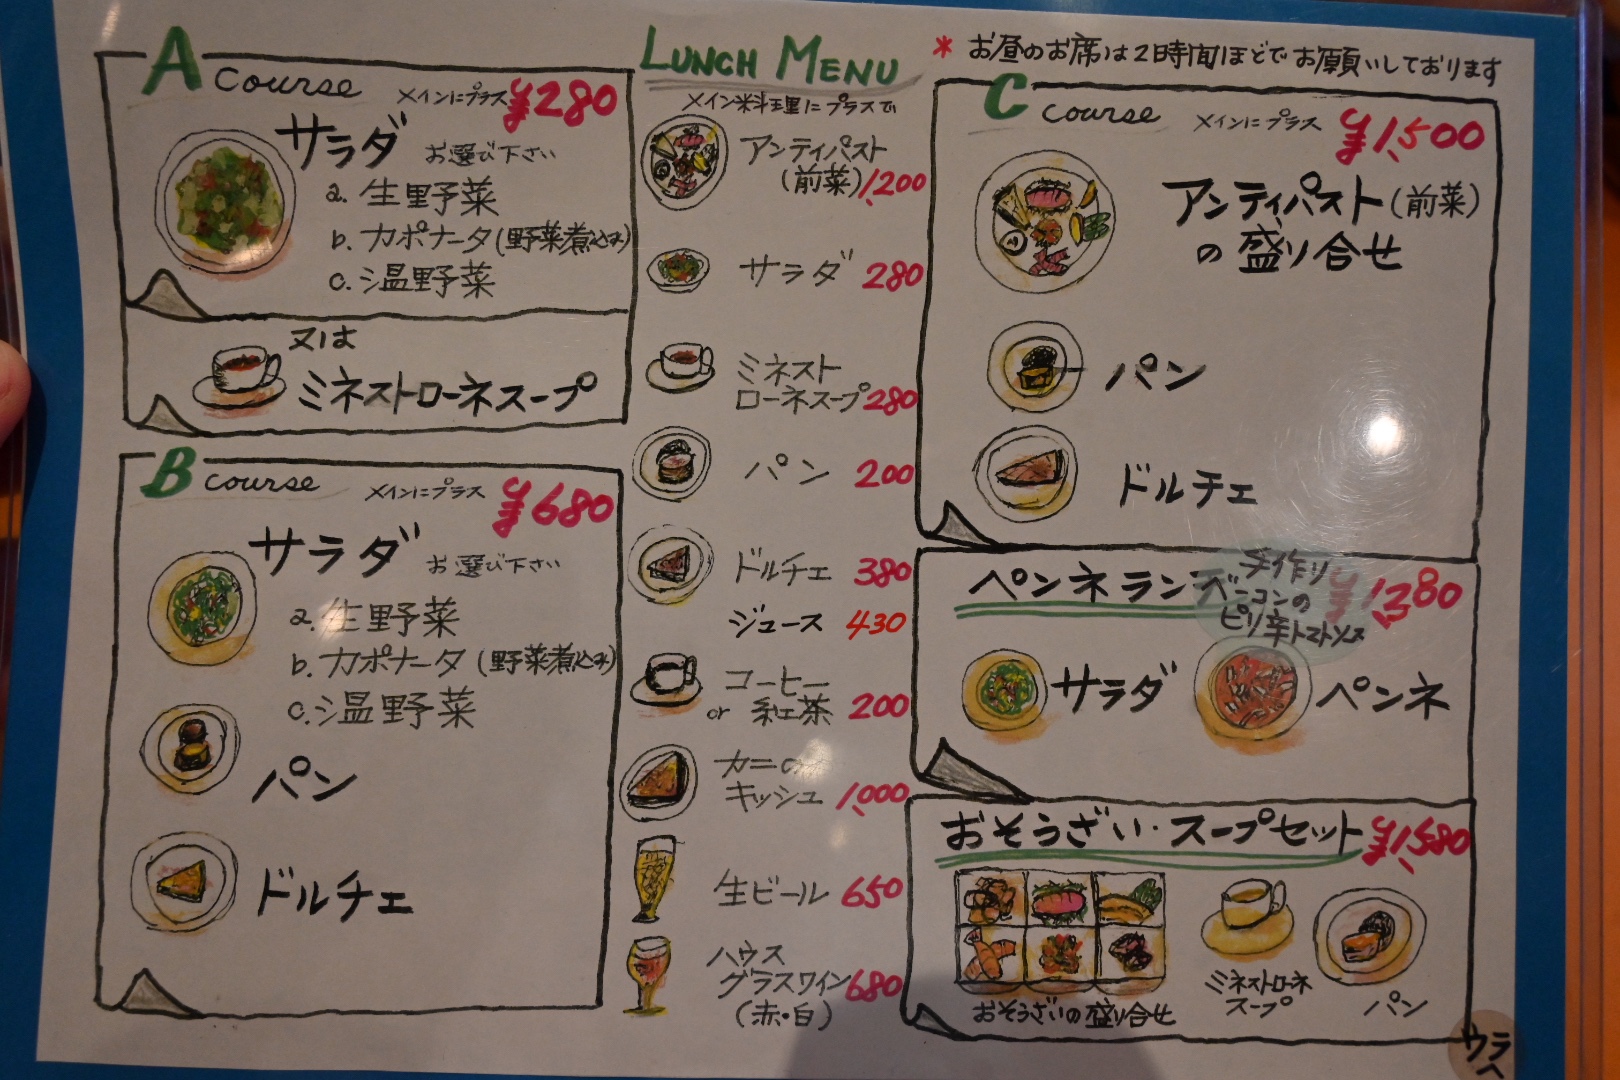 LUNCH MENU
* お昼のお席は2時間ほどでお願いしております
A course メインにプラス ¥280
サラダ お選び下さい
a. 生野菜
b. カポナータ(野菜煮込み)
c. 温野菜
又は
ミネストローネスープ
B course メインにプラス ¥680
サラダ お選び下さい
a. 生野菜
b. カポナータ(野菜煮込み)
c. 温野菜
パン
ドルチェ
メイン料理にプラスで
アンティパスト
(前菜) 1,200
サラダ 280
ミネスト
ローネスープ 280
パン 200
ドルチェ 380
ジュース 430
コーヒー
or 紅茶 200
カニの
キッシュ 1,000
生ビール 650
ハウス
グラスワイン 680
(赤・白)
C course メインにプラス ¥1,500
アンティパスト(前菜)
の盛り合せ
パン
ドルチェ
ペンネラン ¥1,380
手作り
ベーコンの
ピリ辛トマトソース
サラダ ペンネ
おそうざい・スープセット ¥1,580
おそうざいの盛り合せ
ミネストローネ
スープ
パン
ウラへ